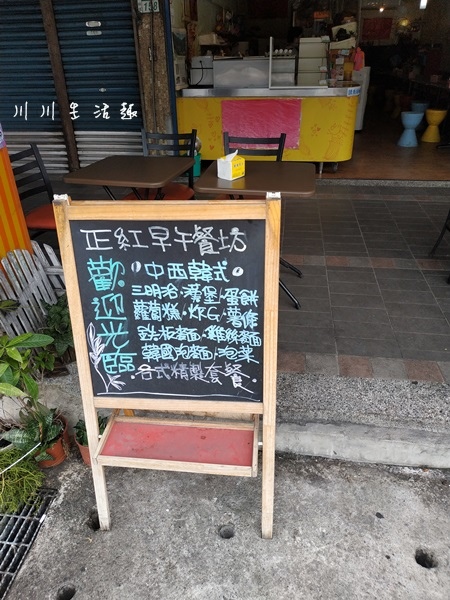 川川生活趣
正紅早午餐坊
歡迎光臨
中西韓式
三明治·漢堡·蛋餅
蘿蔔糕·炸G·薯條
鉄板麵·雞絲麵
韓國泡麵·泡菜
各式精製套餐